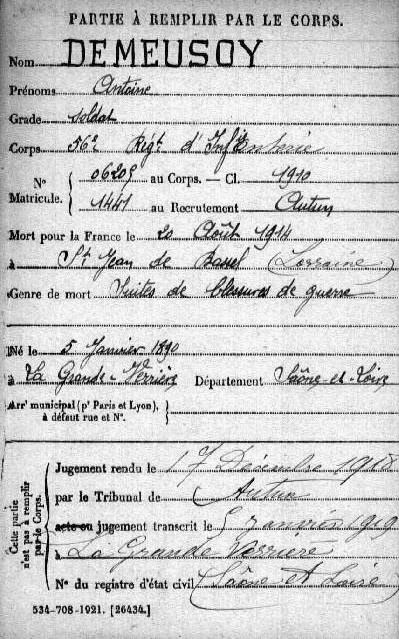 PARTIE À REMPLIR PAR LE CORPS.
Nom DEMEUSOY
Prénoms Antoine
Grade soldat
Corps 56e Régt d'Infanterie
N° Matricule. { 06205 au Corps. — Cl. 1910
1441 au Recrutement Autun
Mort pour la France le 20 Août 1914
à St Jean de Bassel (Lorraine)
Genre de mort Suites de blessures de guerre
Né le 5 Janvier 1890
à La Grande-Verrière Département Saône-et-Loire
Arrt municipal (pr Paris et Lyon), à défaut rue et N°.
Cette partie n'est pas à remplir par le Corps.
Jugement rendu le 17 Décembre 1918
par le Tribunal de Autun
acte ou jugement transcrit le 5 janvier 919
à La Grande Verrière
N° du registre d'état civil (Saône et Loire)
534-708-1921. [26434.]